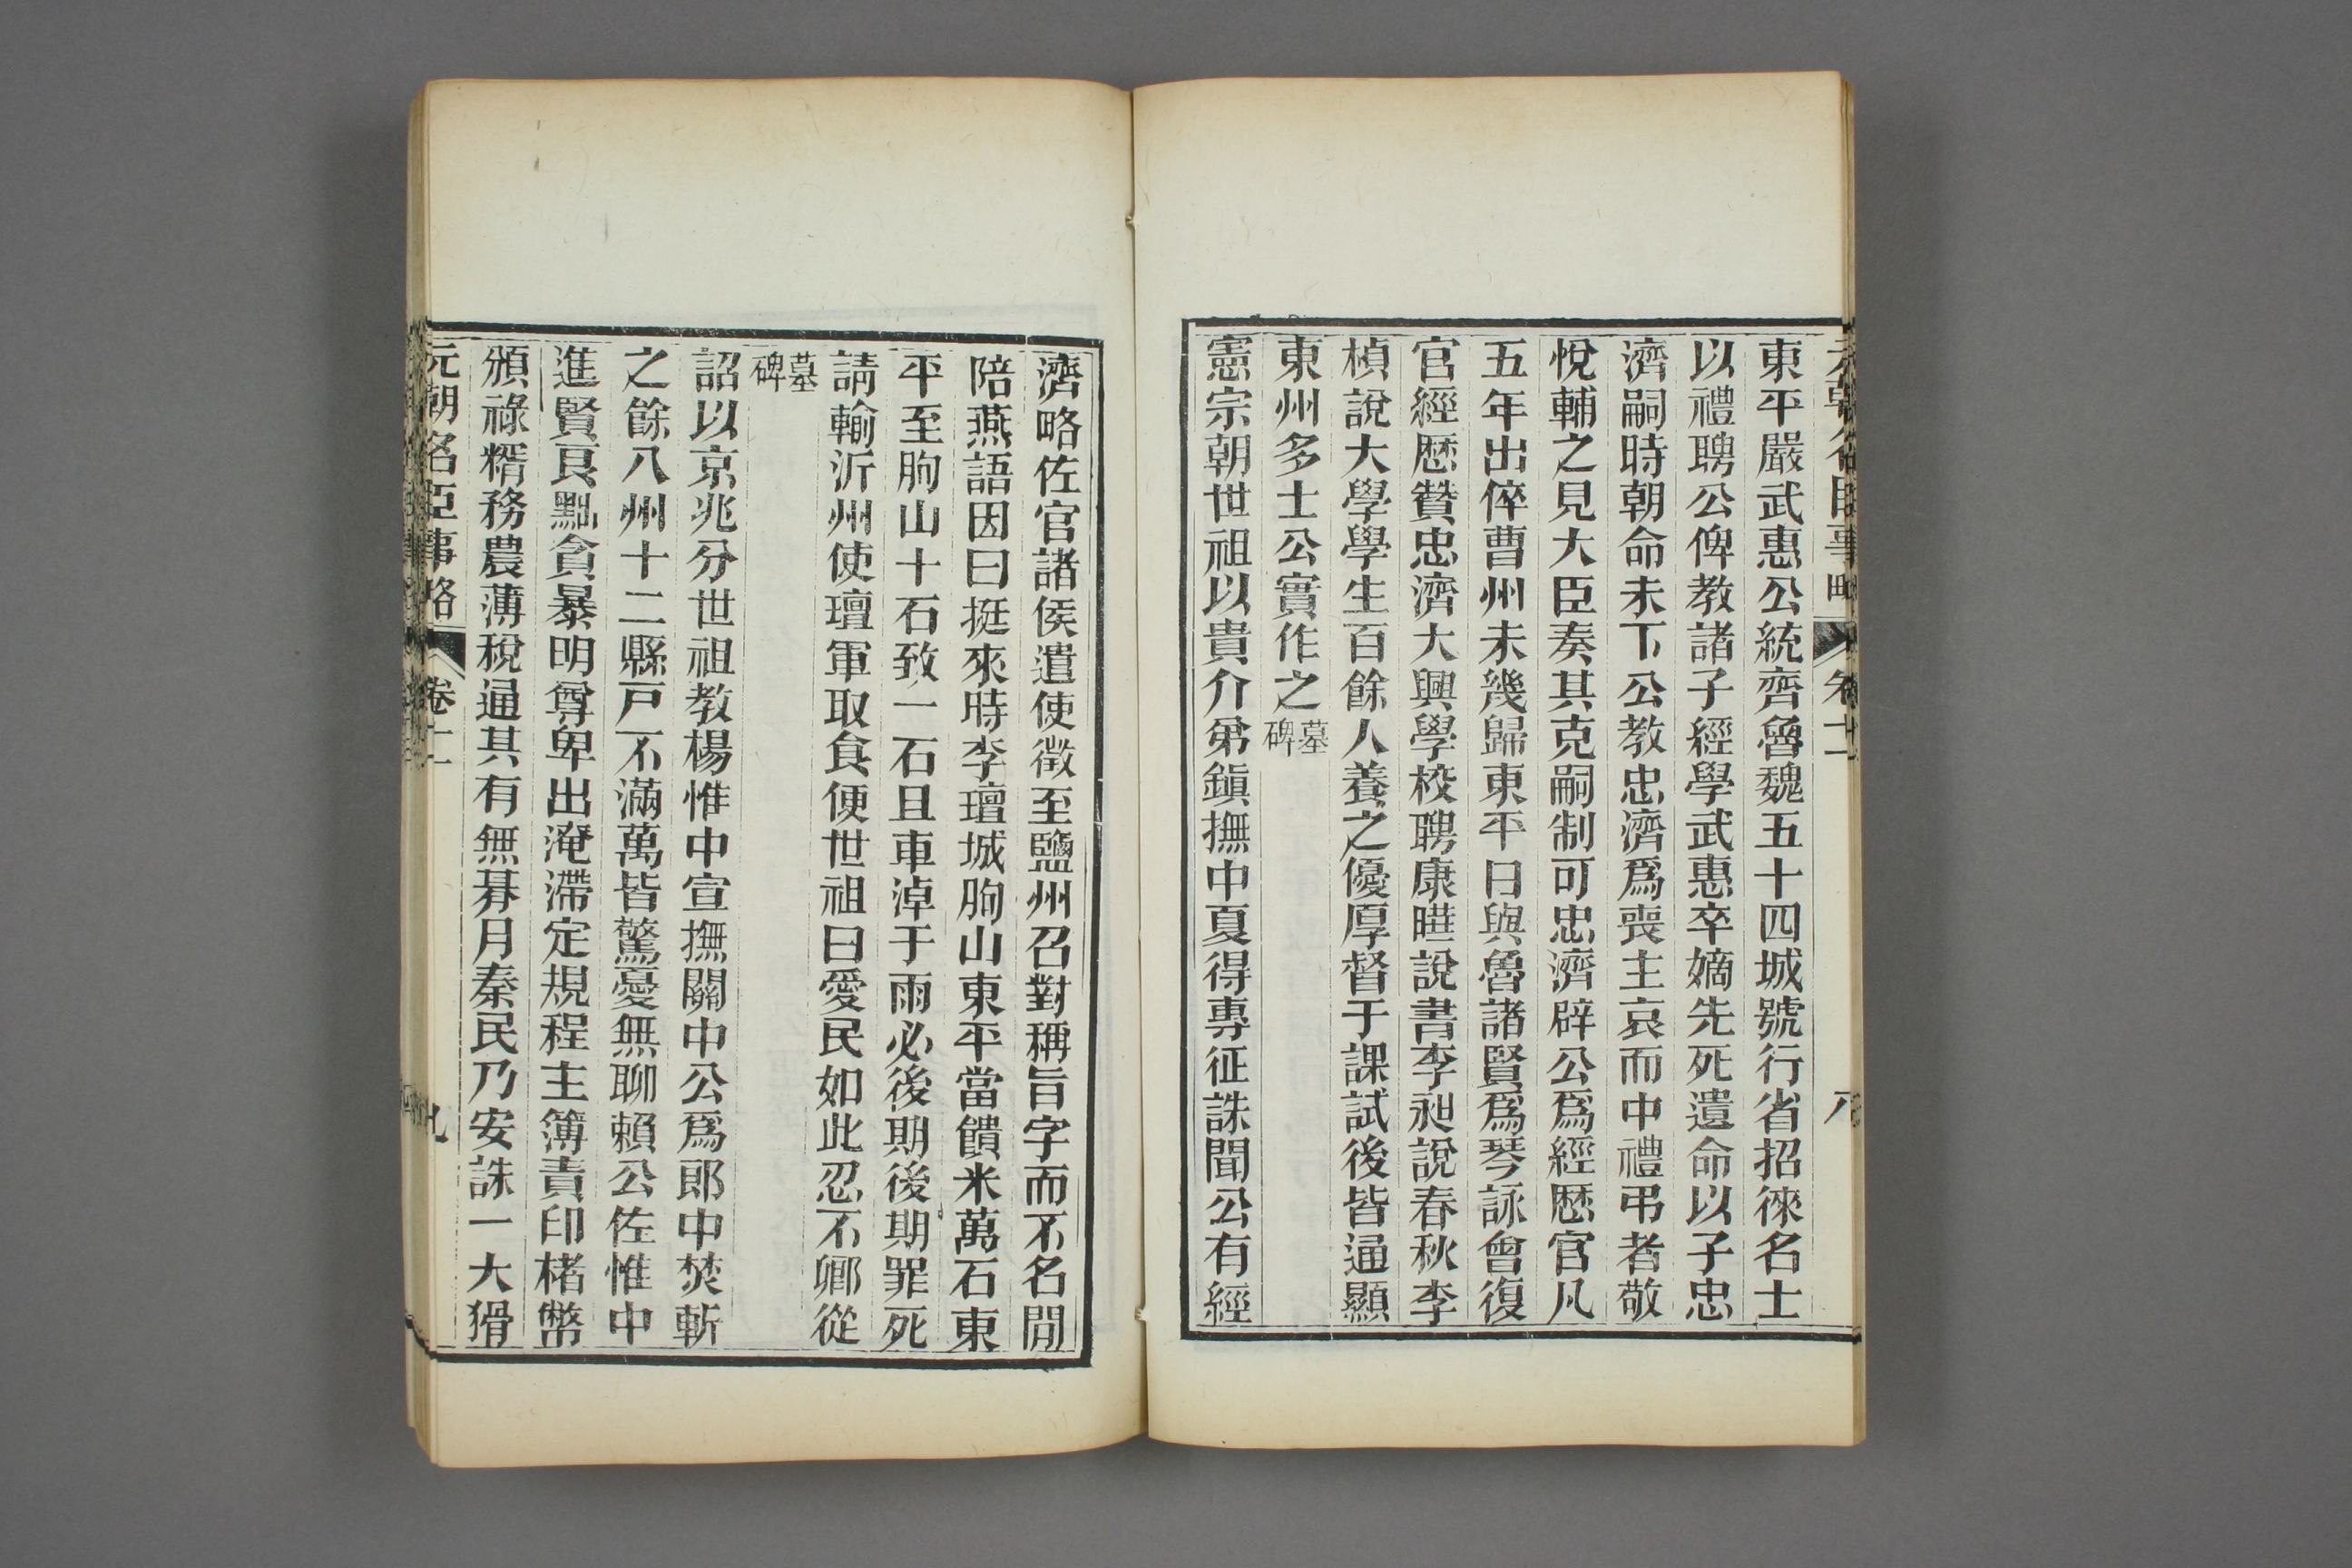 東平嚴武惠公統齊魯魏五十四城號行省招徠名士
以禮聘公俾教諸子經學武惠卒嫡先死遺命以子忠
濟嗣時朝命未下公教忠濟爲喪主哀而中禮弔者敬
悅輔之見大臣奏其克嗣制可忠濟辟公爲經歷官凡
五年出倅曹州未幾歸東平日與魯諸賢爲琴詠會復
官經歷贊忠濟大興學校聘康曄說書李昶說春秋李
楨說大學學生百餘人養之優厚督于課試後皆通顯
東州多士公實作之墓碑
憲宗朝世祖以貴介弟鎮撫中夏得專征誅聞公有經
濟略佐官諸侯遣使徵至鹽州召對稱旨字而不名閒
陪燕語因曰挺來時李璮城朐山東平當饋米萬石東
平至朐山十石致一石且車淖于雨必後期後期罪死
請輸沂州使璮軍取食便世祖曰愛民如此忍不卿從
墓碑
詔以京兆分世祖教楊惟中宣撫關中公爲郎中焚斬
之餘八州十二縣戶不滿萬皆驚憂無聊賴公佐惟中
進賢良黜貪暴明尊卑出淹滯定規程主簿責印楮幣
頒祿糈務農薄稅通其有無朞月秦民乃安誅一大猾
元朝名臣事略 卷十一 九